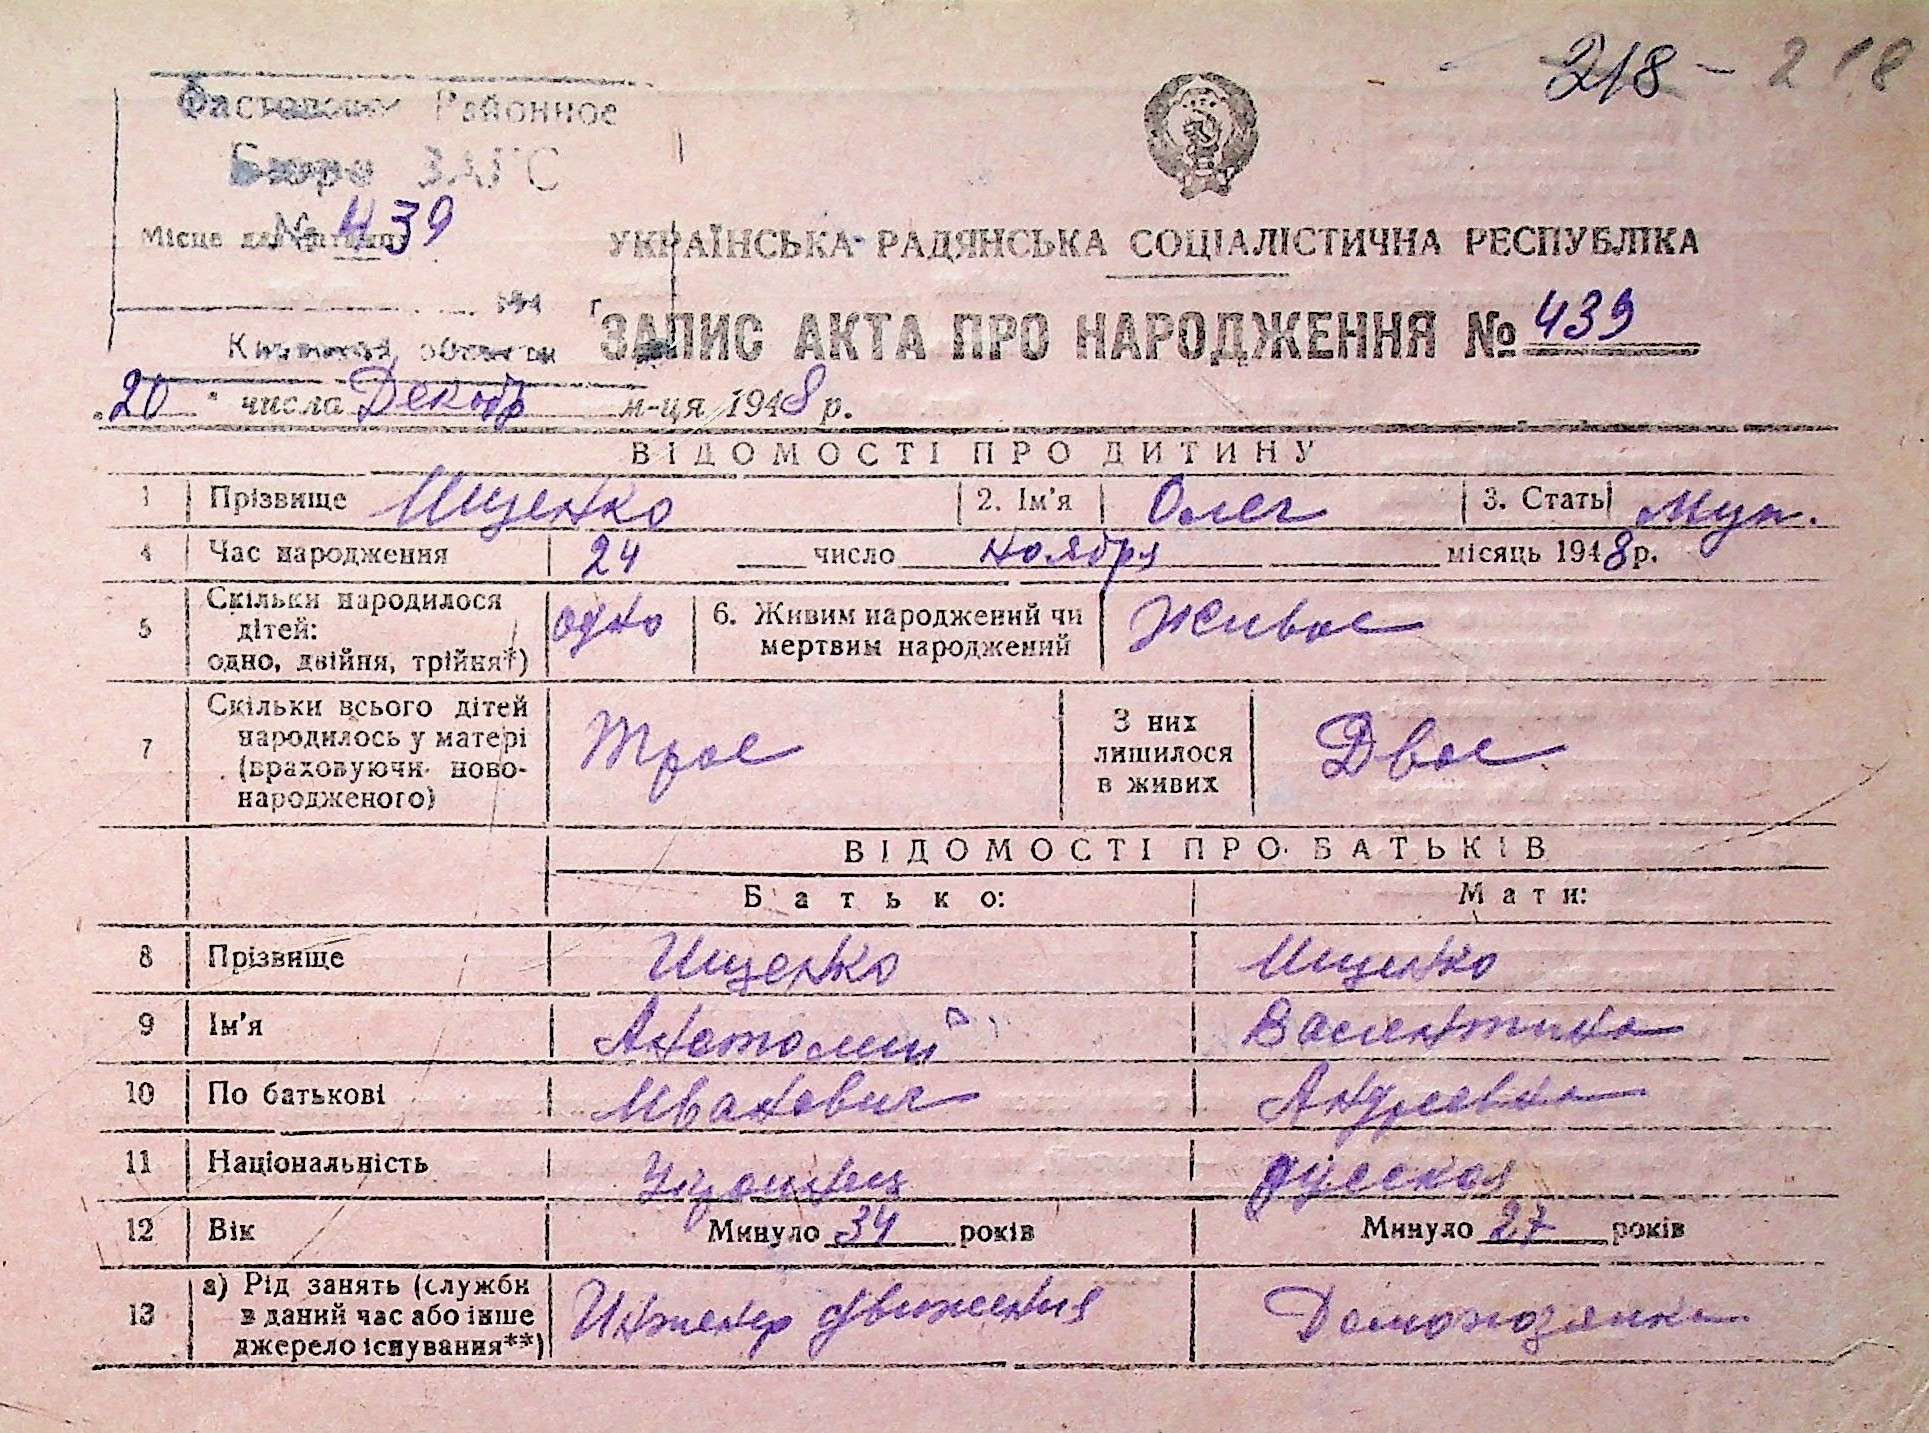 218 - 218
Фастовское Районное
Бюро ЗАГС
№ 439
Місце для штампу
194 г.
Киевской области
УКРАЇНСЬКА РАДЯНСЬКА СОЦІАЛІСТИЧНА РЕСПУБЛІКА
ЗАПИС АКТА ПРО НАРОДЖЕННЯ № 439
„20" числа Декабр м-ця 1948 р.
ВІДОМОСТІ ПРО ДИТИНУ
1 Прізвище Ищенко 2. Ім'я Олег 3. Стать Муж.
4 Час народження 24 число ноября місяць 1948 р.
5 Скільки народилося дітей: одно, двійня, трійня*) одно 6. Живим народжений чи мертвим народжений Живое
7 Скільки всього дітей народилось у матері (враховуючи новонародженого) Трое З них лишилося в живих Двое
ВІДОМОСТІ ПРО БАТЬКІВ
Батько: Мати:
8 Прізвище Ищенко Ищенко
9 Ім'я Анатолий Валентина
10 По батькові Иванович Андреевна
11 Національність Украинец русская
12 Вік Минуло 34 років Минуло 27 років
13 а) Рід занять (служби в даний час або інше джерело існування**) Инженер движения Домохозяйка